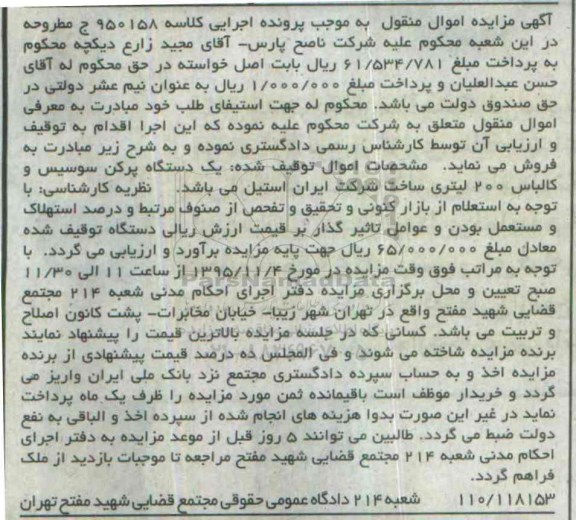 آگهی مزایده اموال منقول به موجب پرونده اجرایی کلاسه ۹۵۰۱۵۸ ج مطروحه
در این شعبه محکوم علیه شرکت ناصح پارس- آقای مجید زارع دیکچه محکوم
به پرداخت مبلغ ۶۱/۵۳۴/۷۸۱ ریال بابت اصل خواسته در حق محکوم له آقای
حسن عبدالعلیان و پرداخت مبلغ ۱/۰۰۰/۰۰۰ ریال به عنوان نیم عشر دولتی در
حق صندوق دولت می باشد. محکوم له جهت استیفای طلب خود مبادرت به معرفی
اموال منقول متعلق به شرکت محکوم علیه نموده که این اجرا اقدام به توقیف
و ارزیابی آن توسط کارشناس رسمی دادگستری نموده و به شرح زیر مبادرت به
فروش می نماید. مشخصات اموال توقیف شده: یک دستگاه پرکن سوسیس و
کالباس ۲۰۰ لیتری ساخت شرکت ایران استیل می باشد. نظریه کارشناسی: با
توجه به استعلام از بازار کنونی و تحقیق و تفحص از صنوف مرتبط و درصد استهلاک
و مستعمل بودن و عوامل تاثیر گذار بر قیمت ارزش ریالی دستگاه توقیف شده
معادل مبلغ ۶۵/۰۰۰/۰۰۰ ریال جهت پایه مزایده برآورد و ارزیابی می گردد. با
توجه به مراتب فوق وقت مزایده در مورخ ۱۳۹۵/۱۱/۴ از ساعت ۱۱ الی ۱۱/۳۰
صبح تعیین و محل برگزاری مزایده دفتر اجرای احکام مدنی شعبه ۲۱۴ مجتمع
قضایی شهید مفتح واقع در تهران شهر زیبا- خیابان مخابرات- پشت کانون اصلاح
و تربیت می باشد. کسانی که در جلسه مزایده بالاترین قیمت را پیشنهاد نمایند
برنده مزایده شناخته می شوند و فی المجلس ده درصد قیمت پیشنهادی از برنده
مزایده اخذ و به حساب سپرده دادگستری مجتمع نزد بانک ملی ایران واریز می
گردد و خریدار موظف است باقیمانده ثمن مورد مزایده را ظرف یک ماه پرداخت
نماید در غیر این صورت بدوا هزینه های انجام شده از سپرده اخذ و الباقی به نفع
دولت ضبط می گردد. طالبین می توانند ۵ روز قبل از موعد مزایده به دفتر اجرای
احکام مدنی شعبه ۲۱۴ مجتمع قضایی شهید مفتح مراجعه تا موجبات بازدید از ملک
فراهم گردد.
۱۱۰/۱۱۸۱۵۳ شعبه ۲۱۴ دادگاه عمومی حقوقی مجتمع قضایی شهید مفتح تهران